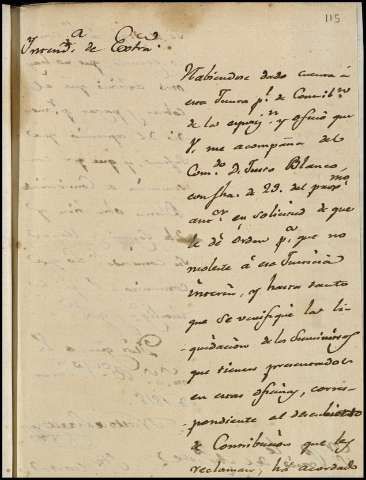 115
Intend.ª de Extra.
Habiendose dado cuenta á
esta Junta p.l de Contrib.n
de la exposic.n y oficio que
V. me acompaña del
Com.do D. Blanco,
con fha. de 29. del prox.mo
ant.or en solicitud de que
se dé orden p.ª que no
moleste á esa
interin, y hasta tanto
que se verifique la li-
quidacion de los Suministros
que tienen presentados
en estas oficinas, corres-
pendiente al descubierto
de Contribucion que les
reclaman; há acordado